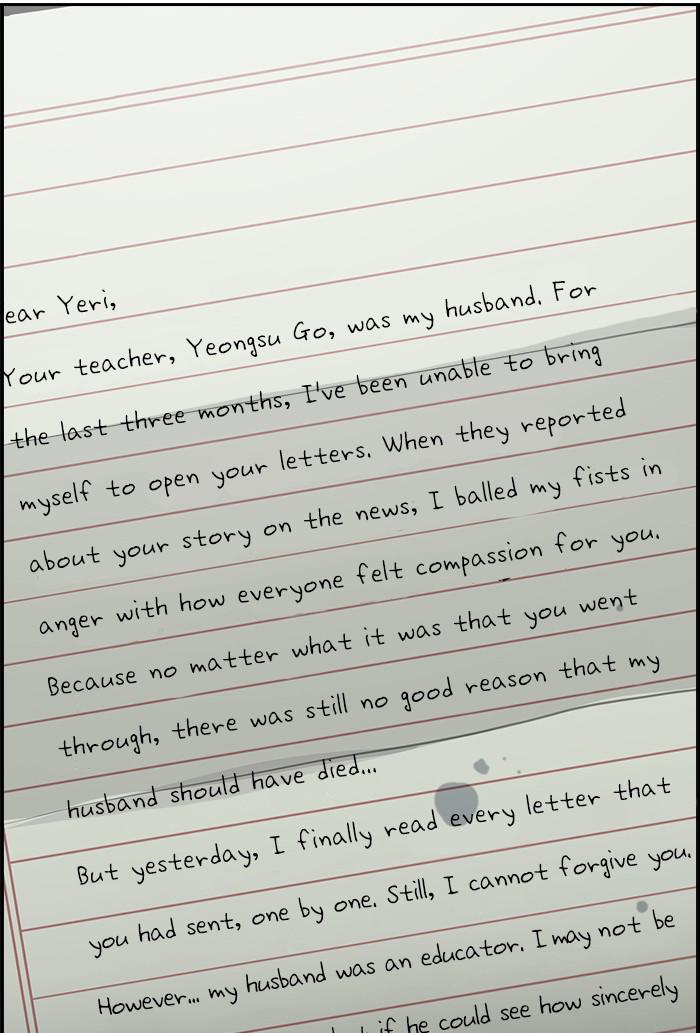 ear Yeri,
Your teacher, Yeongsu Go, was my husband. For
the last three months, I've been unable to bring
myself to open your letters. When they reported
about your story on the news, I balled my fists in
anger with how everyone felt compassion for you.
Because no matter what it was that you went
through, there was still no good reason that my
husband should have died...
But yesterday, I finally read every letter that
you had sent, one by one. Still, I cannot forgive you.
However... my husband was an educator. I may not be
if he could see how sincerely